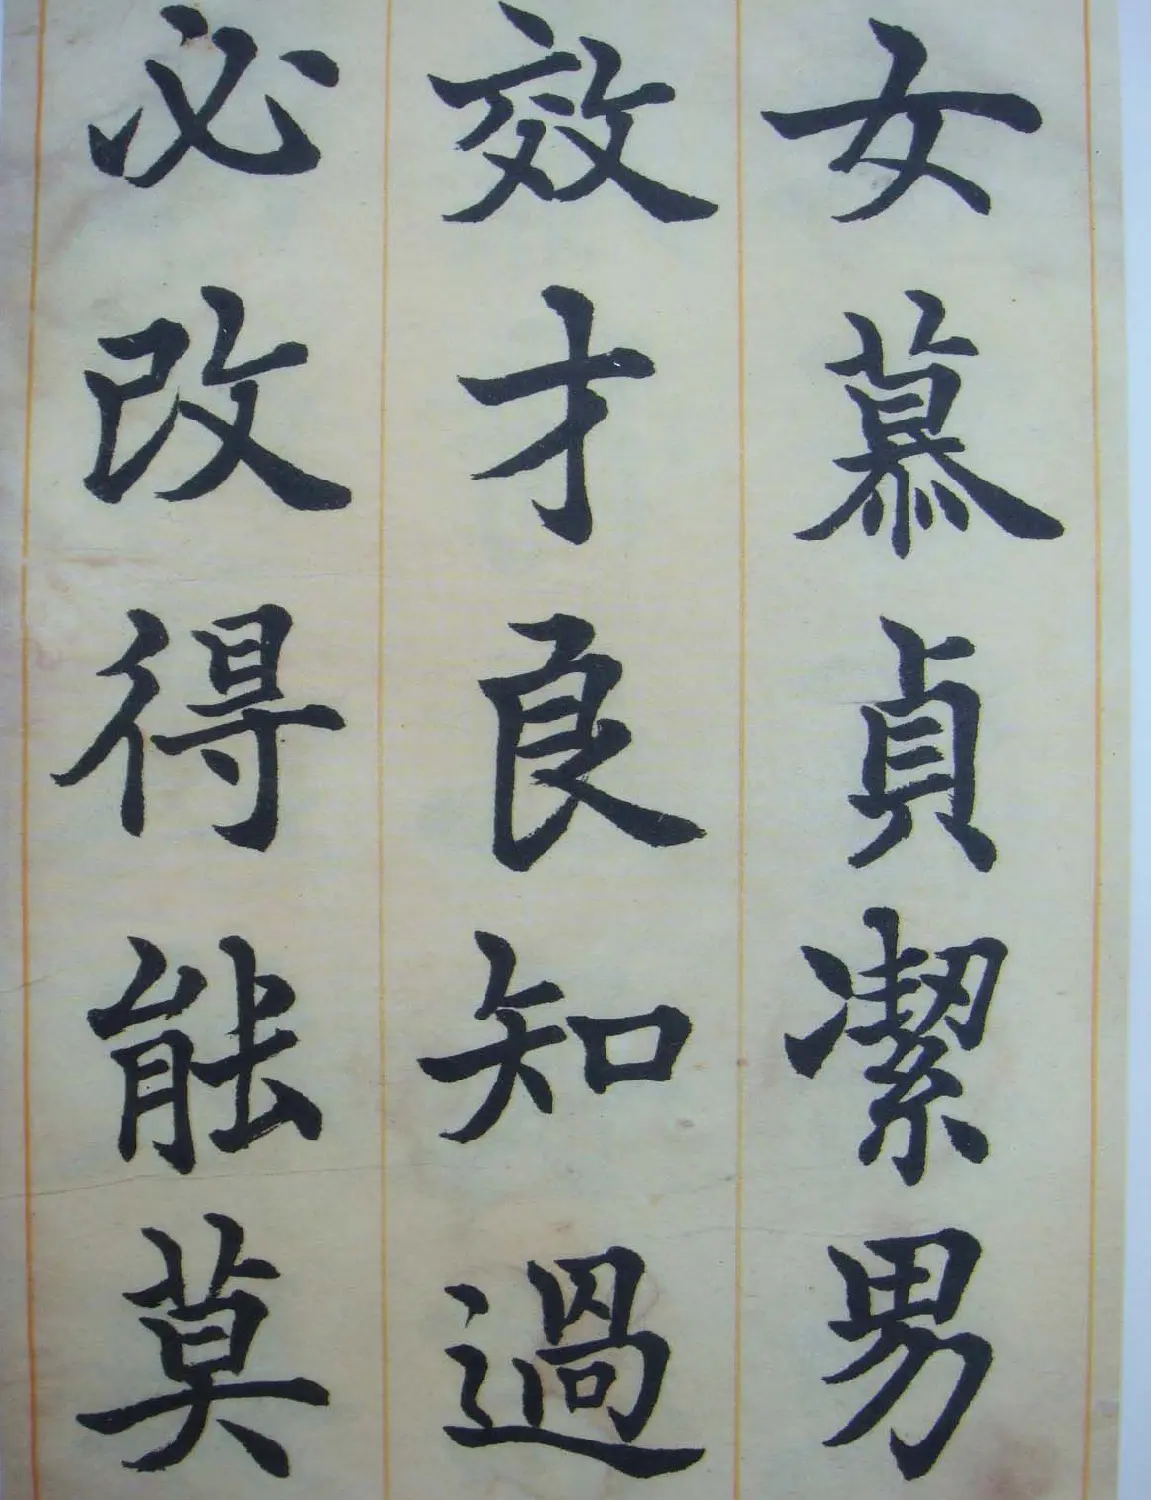 女慕貞潔男
效才良知過
必改得能莫